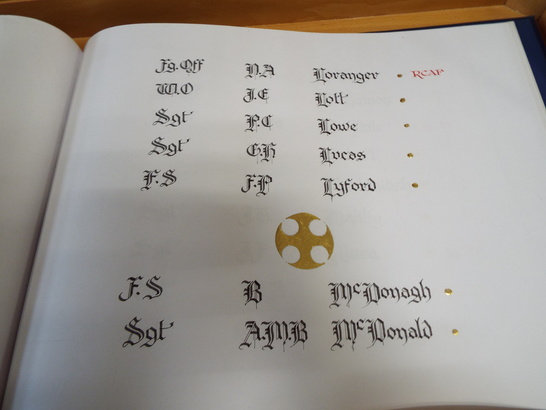 Fg.Off D.A Loranger RCAF
W.O J.E Lott
Sgt P.C Lowe
Sgt G.H Lucas
F.S F.P Lyford
F.S B McDonagh
Sgt A.M.B McDonald